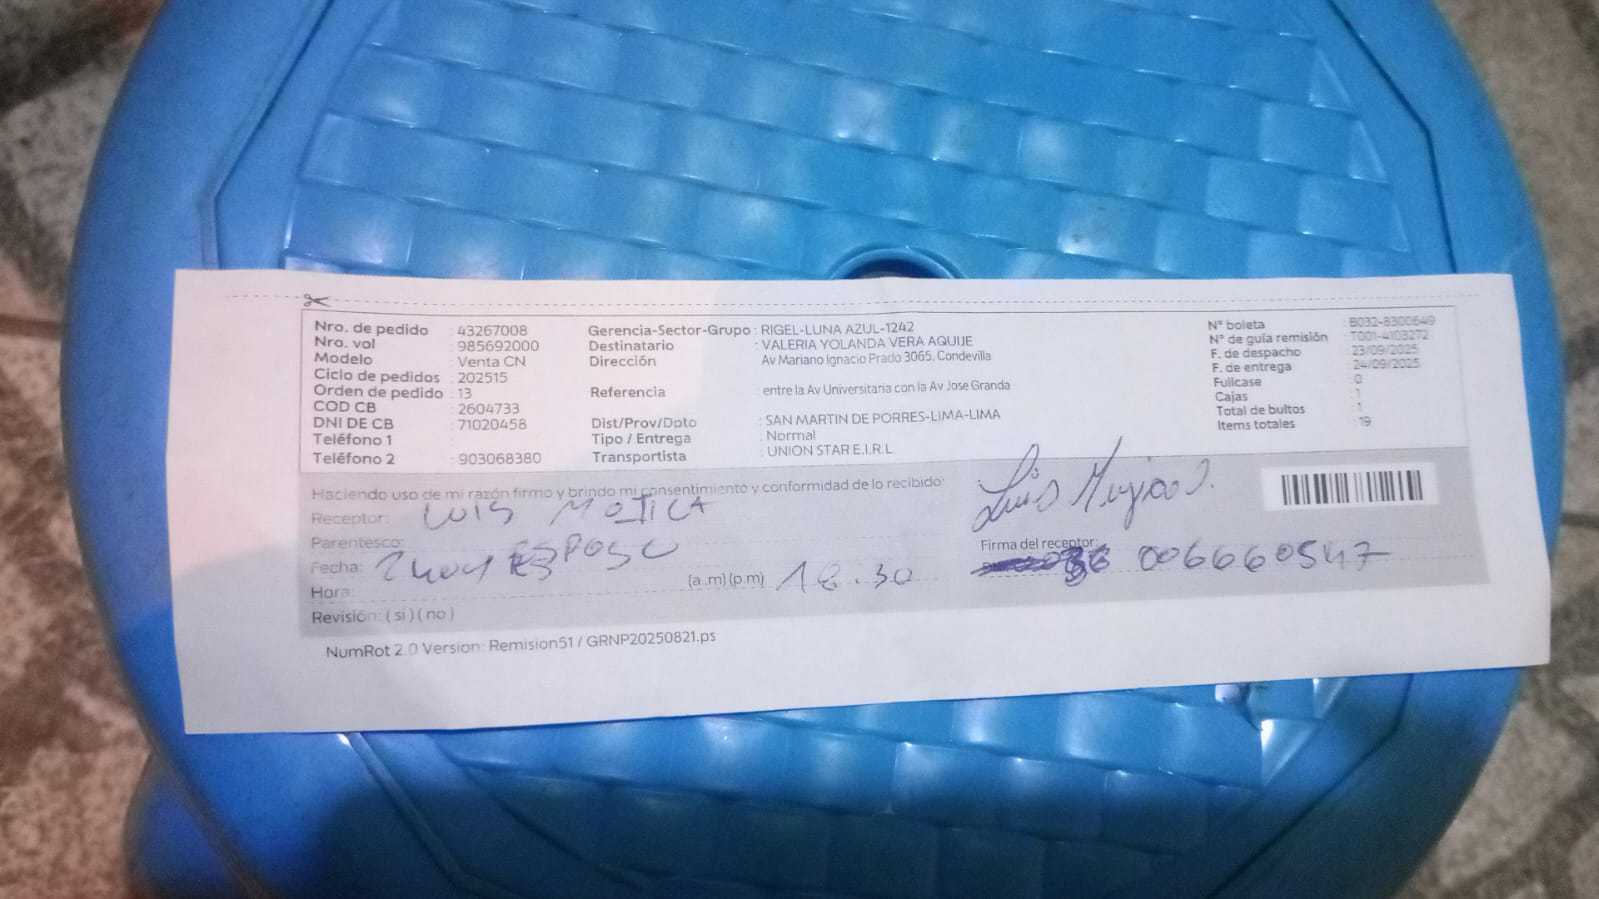 Nro. de pedido : 43267008
Nro. vol : 985692000
Modelo : Venta CN
Ciclo de pedidos : 202515
Orden de pedido : 13
COD CB : 2604733
DNI DE CB : 71020458
Teléfono 1 :
Teléfono 2 : 903068380
Gerencia-Sector-Grupo : RIGEL-LUNA AZUL-1242
Destinatario : VALERIA YOLANDA VERA AQUIJE
Dirección : Av Mariano Ignacio Prado 3065, Condevilla
Referencia : entre la Av Universitaria con la Av Jose Granda
Dist/Prov/Dpto : SAN MARTIN DE PORRES-LIMA-LIMA
Tipo / Entrega : Normal
Transportista : UNION STAR E.I.R.L
N° boleta : B032-8300649
N° de guía remisión : T001-4103272
F. de despacho : 23/09/2025
F. de entrega : 24/09/2025
Fullcase : 0
Cajas : 1
Total de bultos : 1
Items totales : 19
Haciendo uso de mi razón firmo y brindo mi consentimiento y conformidad de lo recibido:
Receptor: LUIS MOJICA
Parentesco: ESPOSO
Fecha:
Hora: (a.m) (p.m) 18.30
Revisión: ( si ) ( no )
Luis
Firma del receptor:
006660547
NumRot 2.0 Version: Remision51 / GRNP20250821.ps